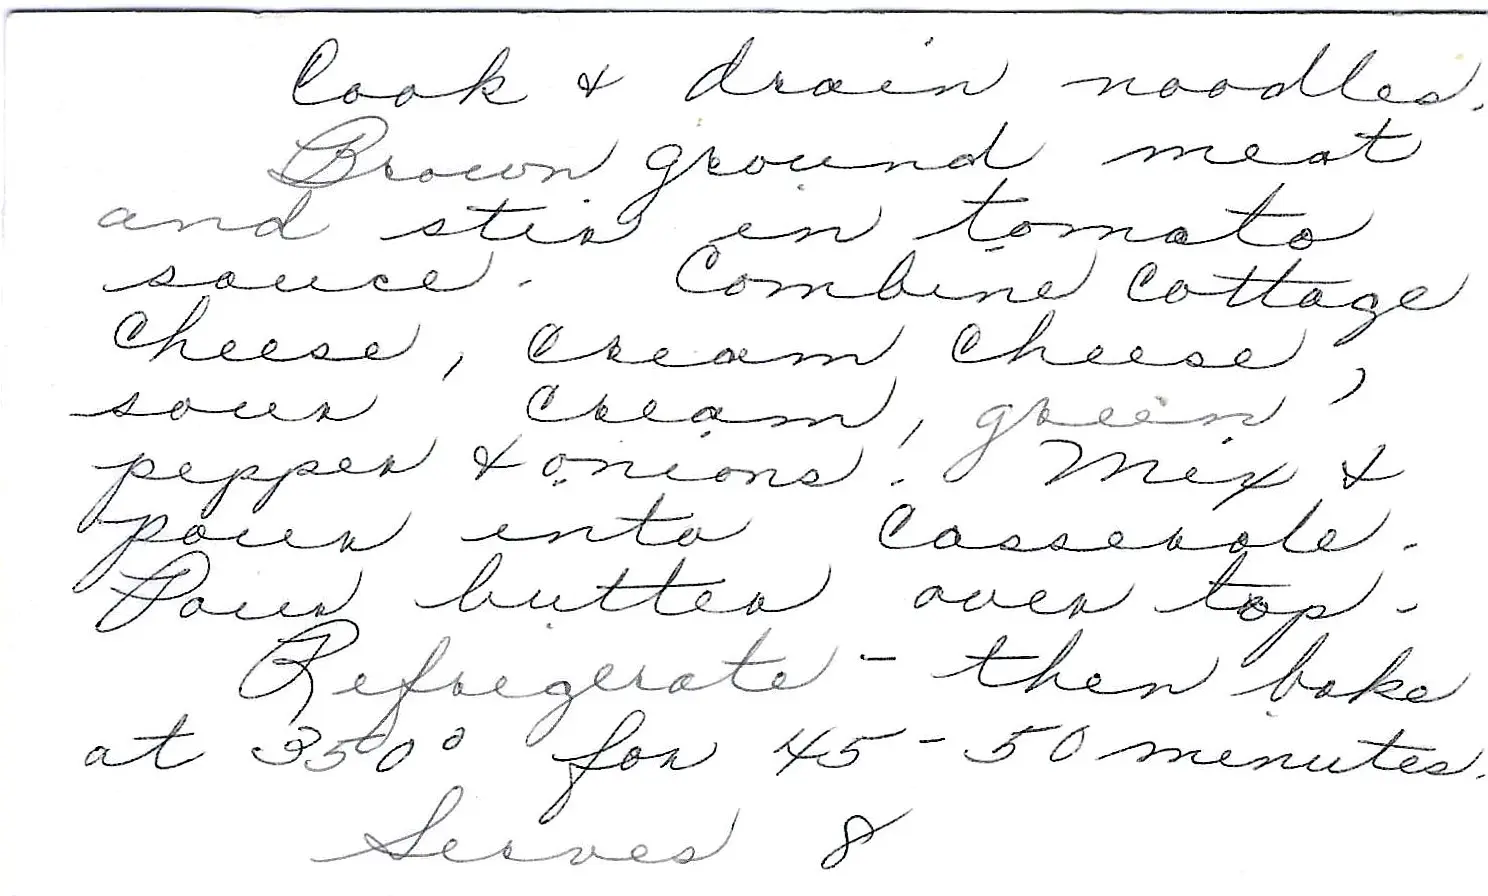 Cook & drain noodles.
Brown ground meat
and stir in tomato
sauce. Combine Cottage
Cheese, Cream Cheese,
sour Cream, green
pepper & onions. Mix &
pour into Casserole.
Pour butter over top.
Refrigerate - then bake
at 350° for 45-50 minutes.
Serves 8